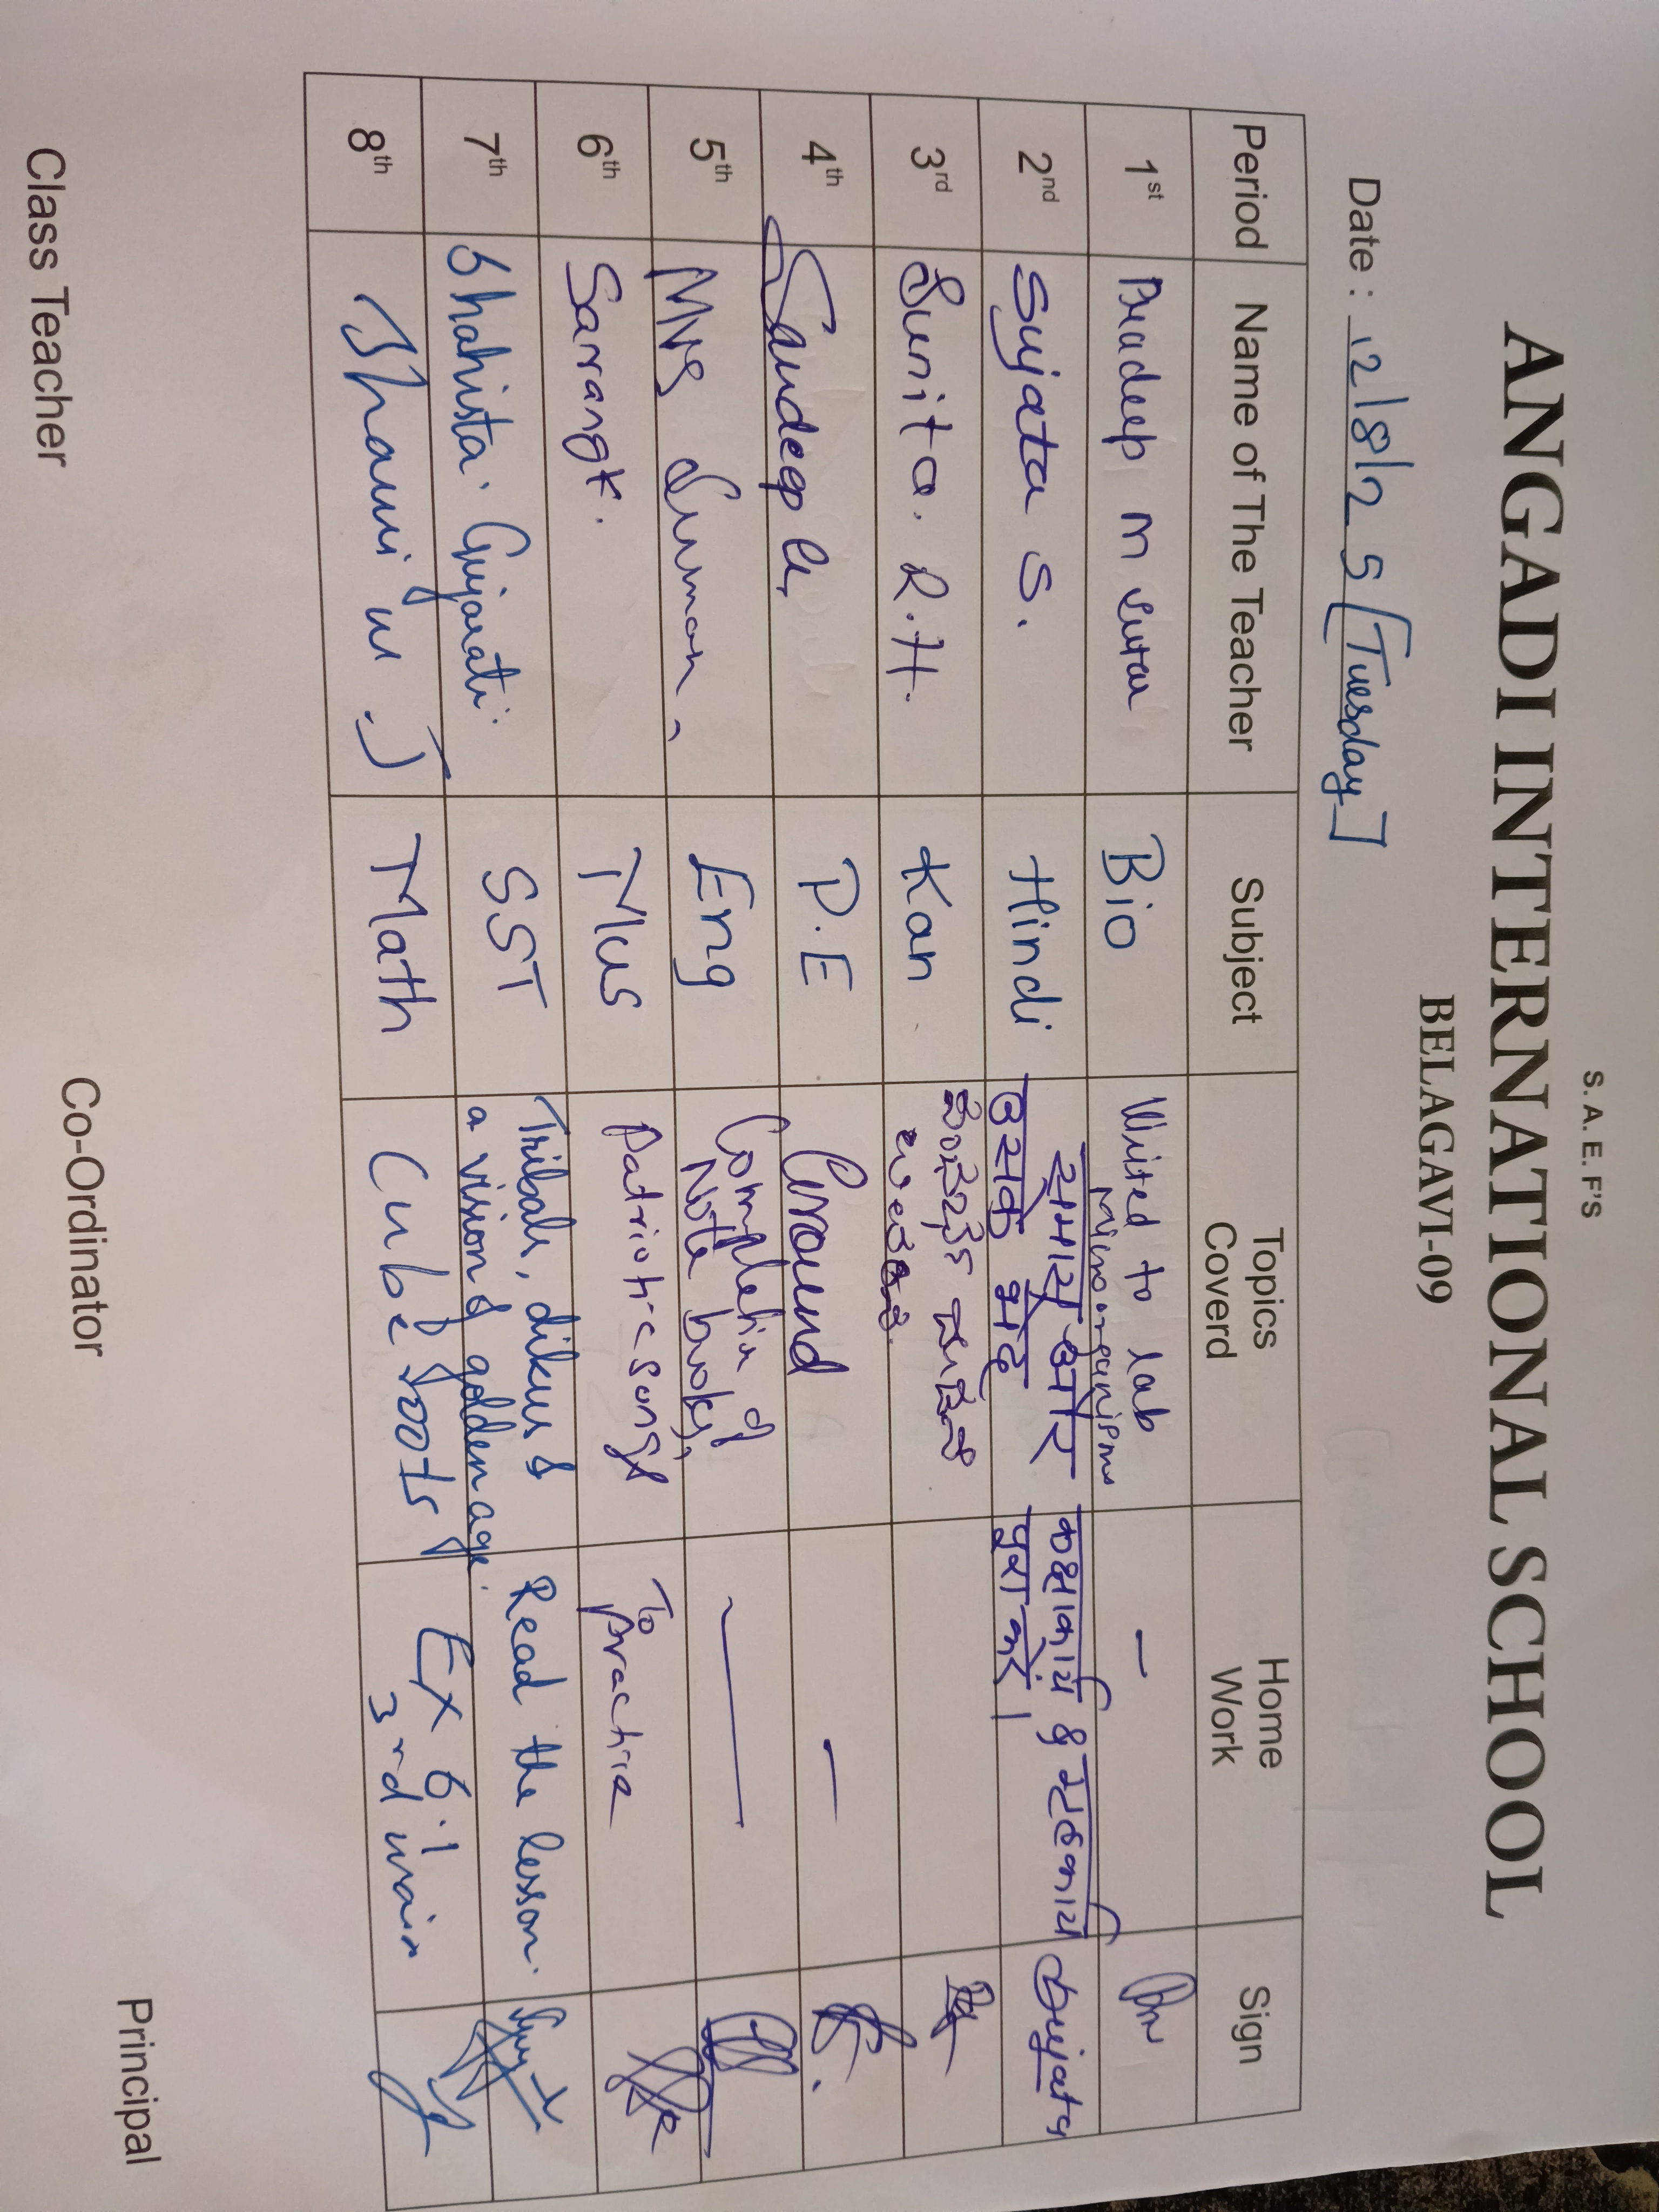 S. A. E. F'S
ANGADI INTERNATIONAL SCHOOL
BELAGAVI-09
Date : 12/8/25 [Tuesday]
Period Name of The Teacher Subject Topics Coverd Home Work Sign
1st Pradeep M Sutar Bio Visited to lab Microorganisms —
2nd Sujata S. Hindi समास और उसके भेद कक्षाकार्य व गृहकार्य पूरा करें। Sujata
3rd Sunita. R.H. Kan
4th Sandeep P.E Ground —
5th Mrs Suman Eng Completion of Note books, —
6th Sarang K. Mus Patriotic songs To practice
7th Shahista. Gujarati. SST Tribals, dikus & a vision of golden age. Read the lesson.
8th Math Cube roots Ex 6.1 3rd main
Class Teacher Co-Ordinator Principal